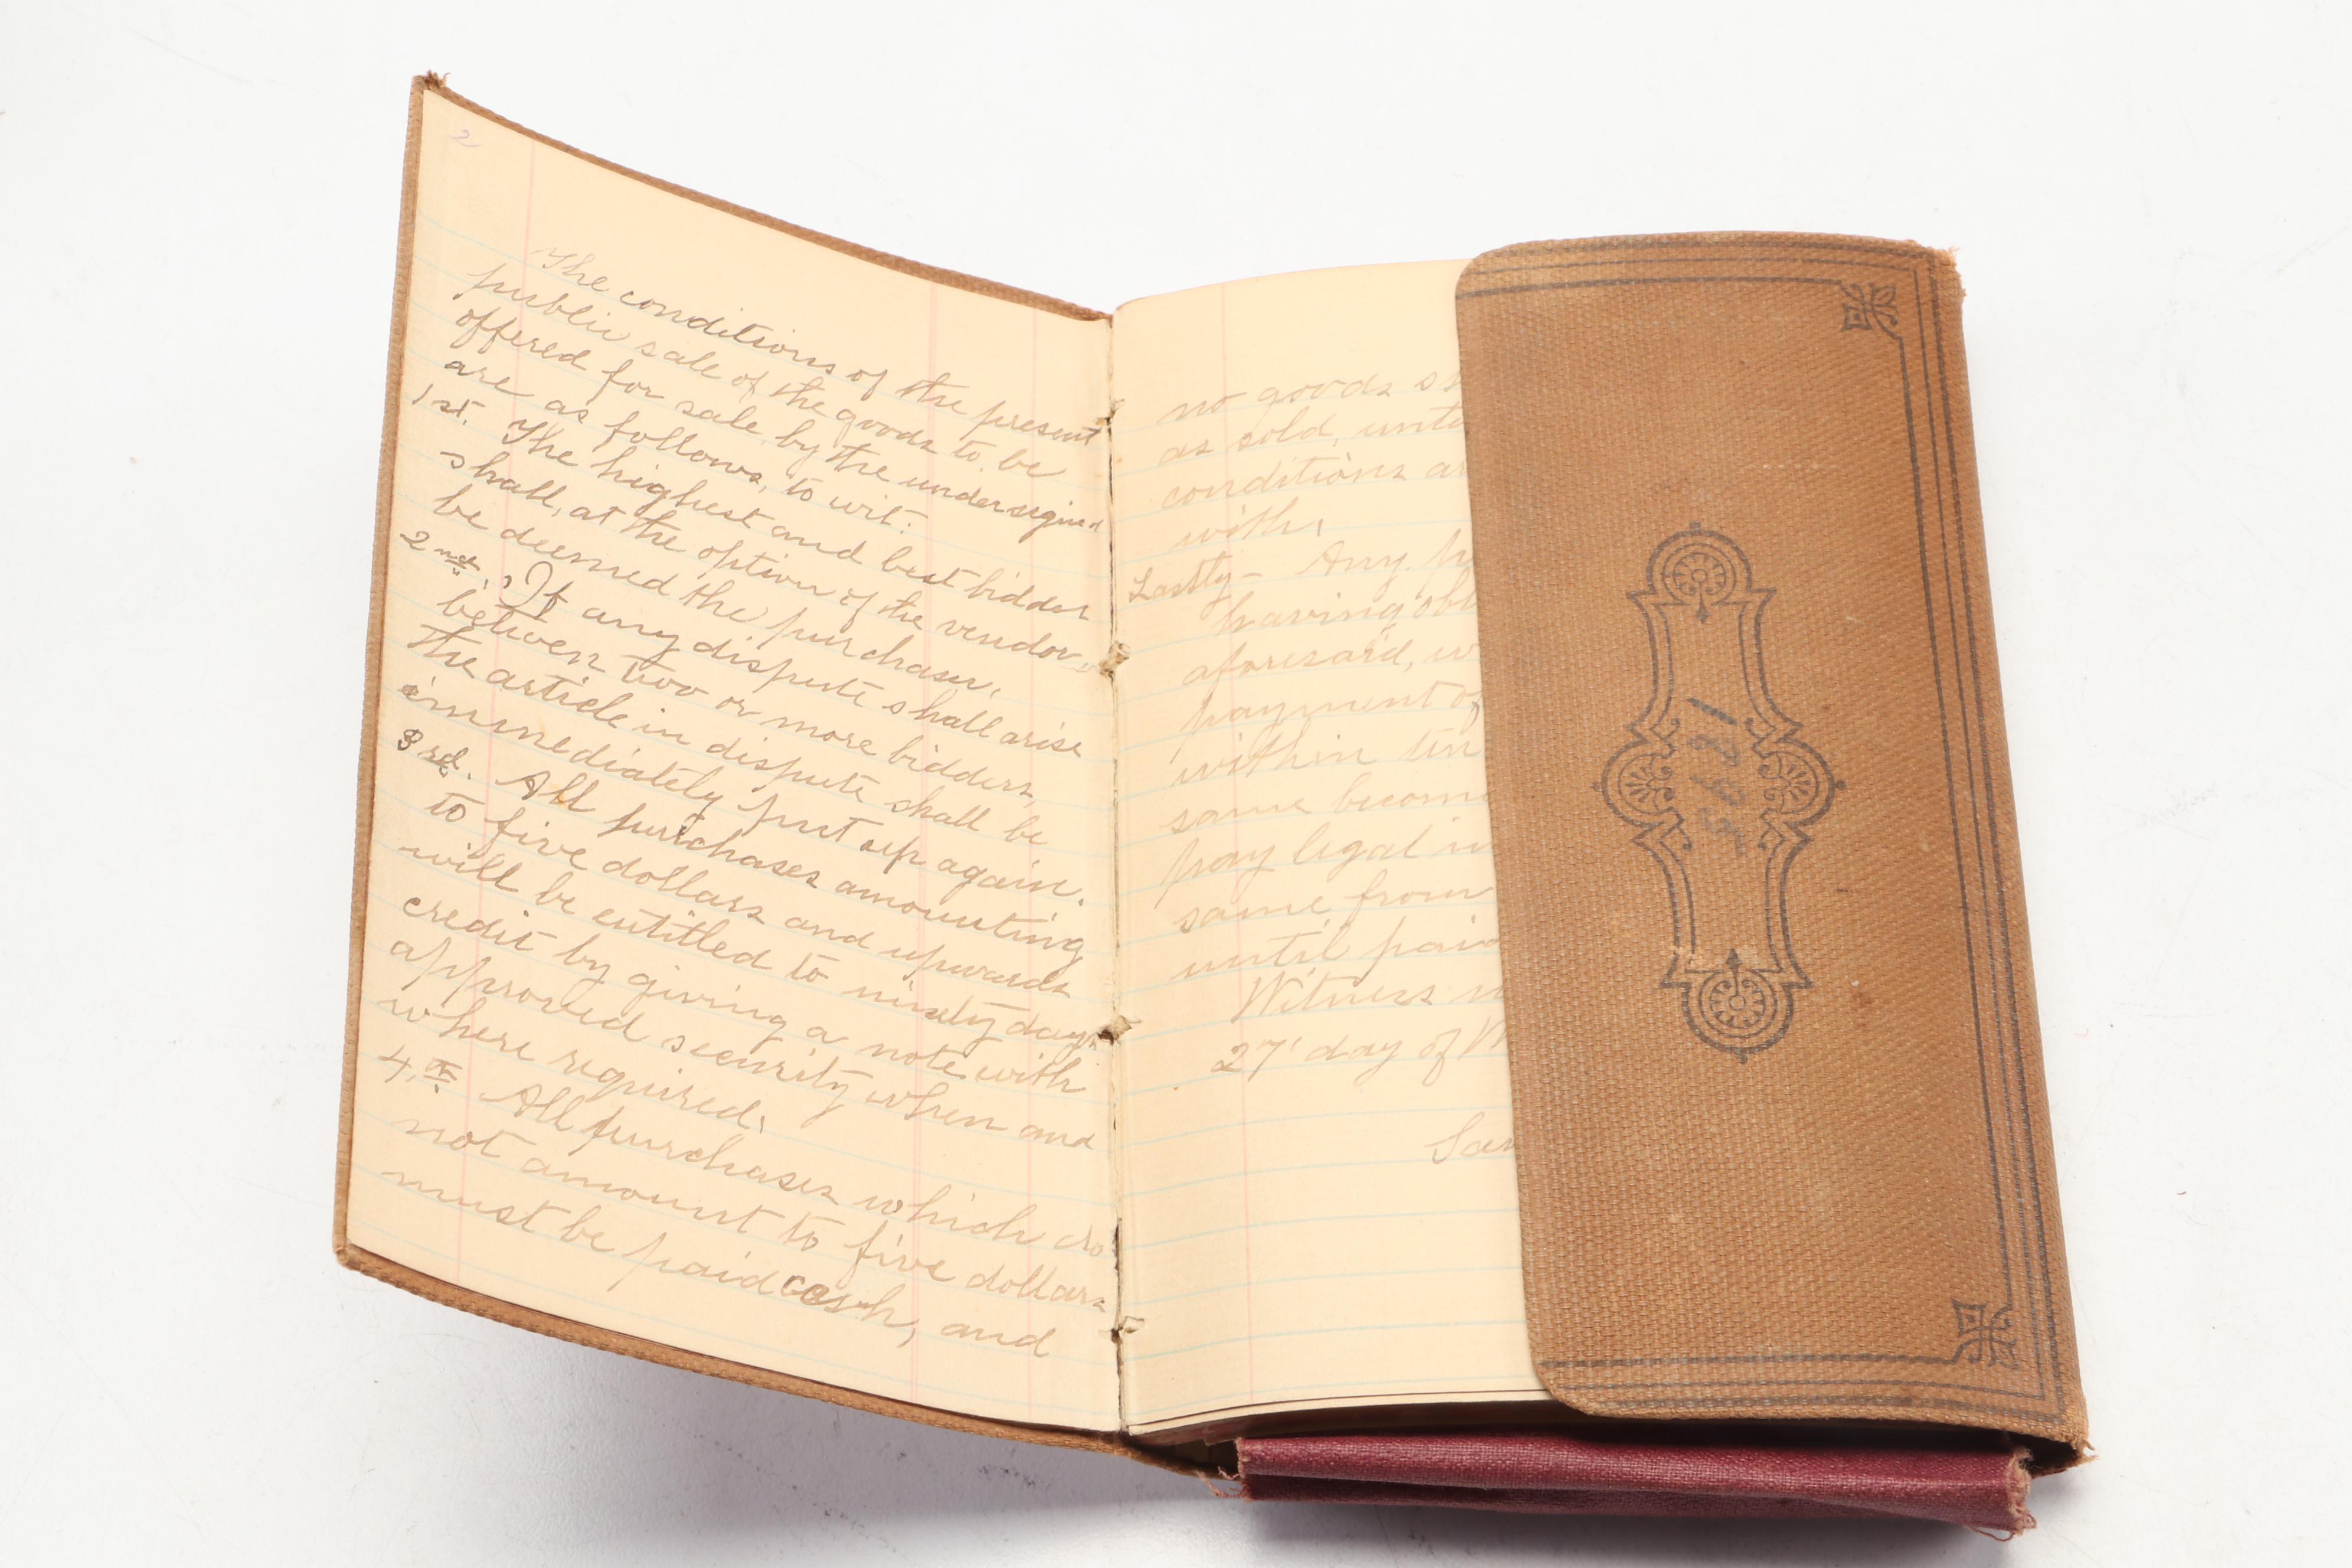 2
The conditions of the present
public sale of the goods to be
offered for sale by the undersigned
are as follows, to wit:
1st. The highest and best bidder
shall, at the option of the vendor,
be deemed the purchaser.
2nd. If any dispute shall arise
between two or more bidders,
the article in dispute shall be
immediately put up again.
3rd. All purchases amounting
to five dollars and upwards
will be entitled to ninety days
credit by giving a note with
approved security when and
where required.
4th All purchases which do
not amount to five dollars
must be paid cash, and
no goods
as sold,
conditions
with,
Lastly- Any
having
aforesaid,
payment of
within ten
same
pay legal
same from
until paid
Witness
27' day of
1895